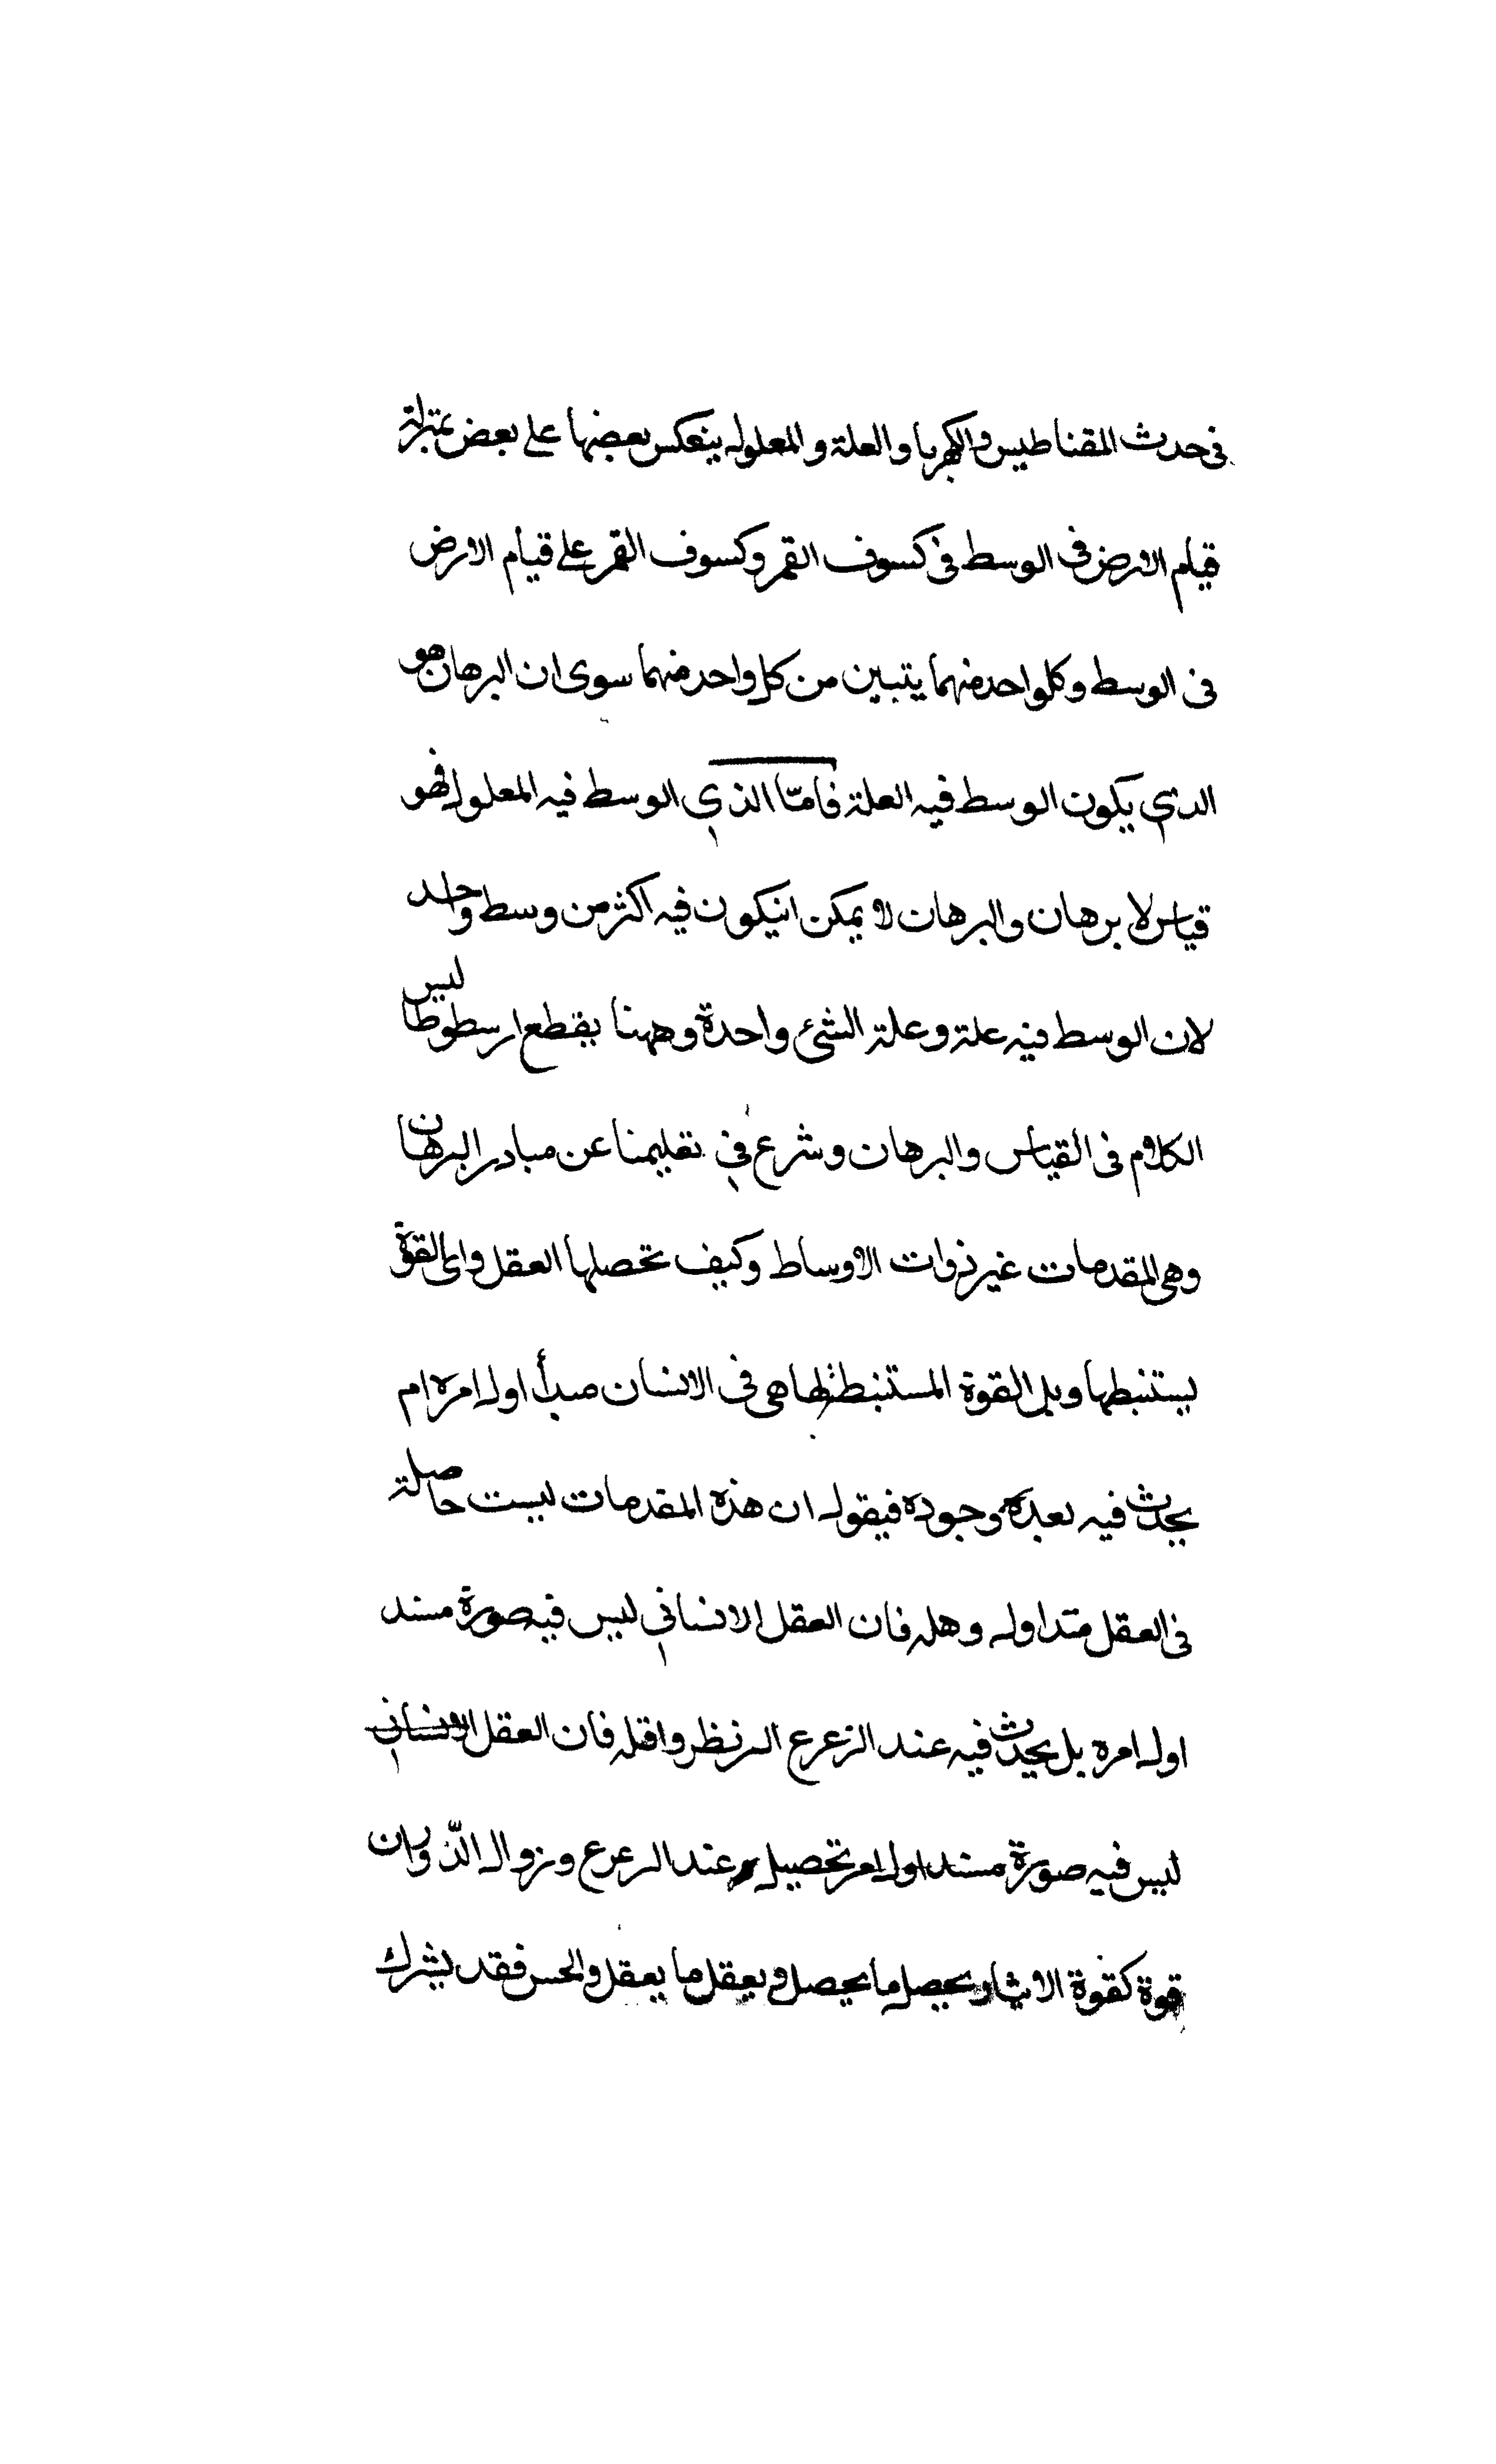 في حدث المقناطيس والكهربا والعلة والمعلول ينعكس بعضها على بعض بمنزلة
قيام الارض في الوسط في كسوف القمر وكسوف القمر على قيام الارض
في الوسط وكلواحد منهما يتبين من كل واحد منهما سوى ان البرهان هو
الدي يكون الوسط فيه العلة فامّا الذي الوسط فيه المعلول فهو
قياس لا برهان والبرهان لا يمكن انيكون فيه اكثر من وسط واحد
لان الوسط فيه علة وعلة الشئ واحدة وههنا يقطع ارسطوطاليس
الكلام في القياس والبرهان وشرع في تعليمنا عن مبادر البرهان
وهي المقدمات غير ذوات الاوساط وكيف تحصلها العقل واى القوة
يستنبطها وبل القوة المستنبطة لها هي في الانسان مبدأ اول امره ام
يحدث فيه بعد وجوده فيقول ان هذه المقدمات ليست حاصلة
في العقل متد اول وهله فان العقل الانساني ليس فيه صورة مسند
اول امره بل يحدث فيه عند الزعرع الرنظر واقله فان العقل الانساني
ليس فيه صورة مسند اول امر تحصيل عند الرعرع وزوال الذّوبان
قوة كقوة الايثار يحصل ما يحصل ويعقل ما يعقل والحس فقد يشرك